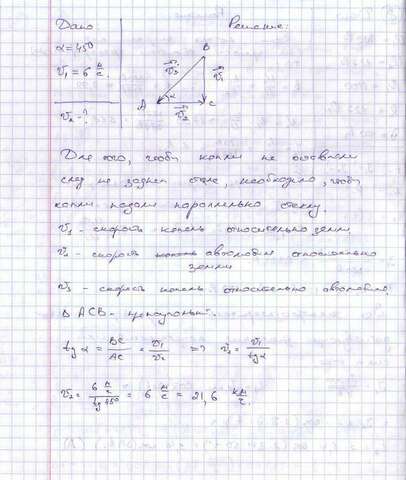 Дано
Решение:
α = 45°
B
v₁ = 6 м/с.
v₃ v₁
α
A C
v₂ - ?
v₂
Для того, чтобы капли не оставляли
след на заднем стекле, необходимо, чтобы
капли падали параллельно стеклу.
v₁ - скорость капель относительно земли.
v₂ - скорость автомобиля относительно
земли
v₃ - скорость капель относительно автомобиля.
Δ ACB - прямоугольный.
tg α = BC/AC = v₁/v₂ => v₂ = v₁/tg α
v₂ = 6 м/с / tg 45° = 6 м/с = 21,6 км/ч.